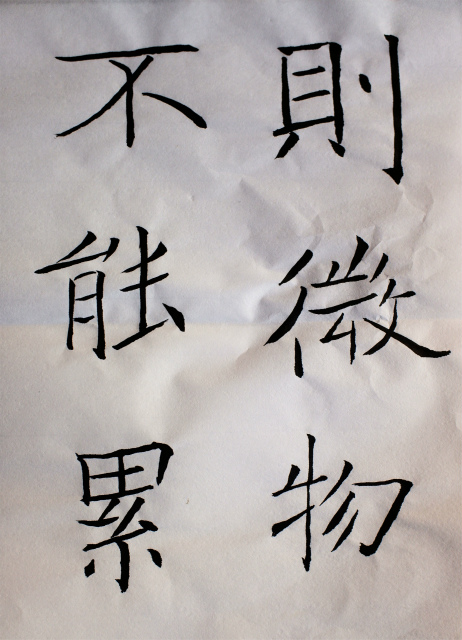 則微物
不能累